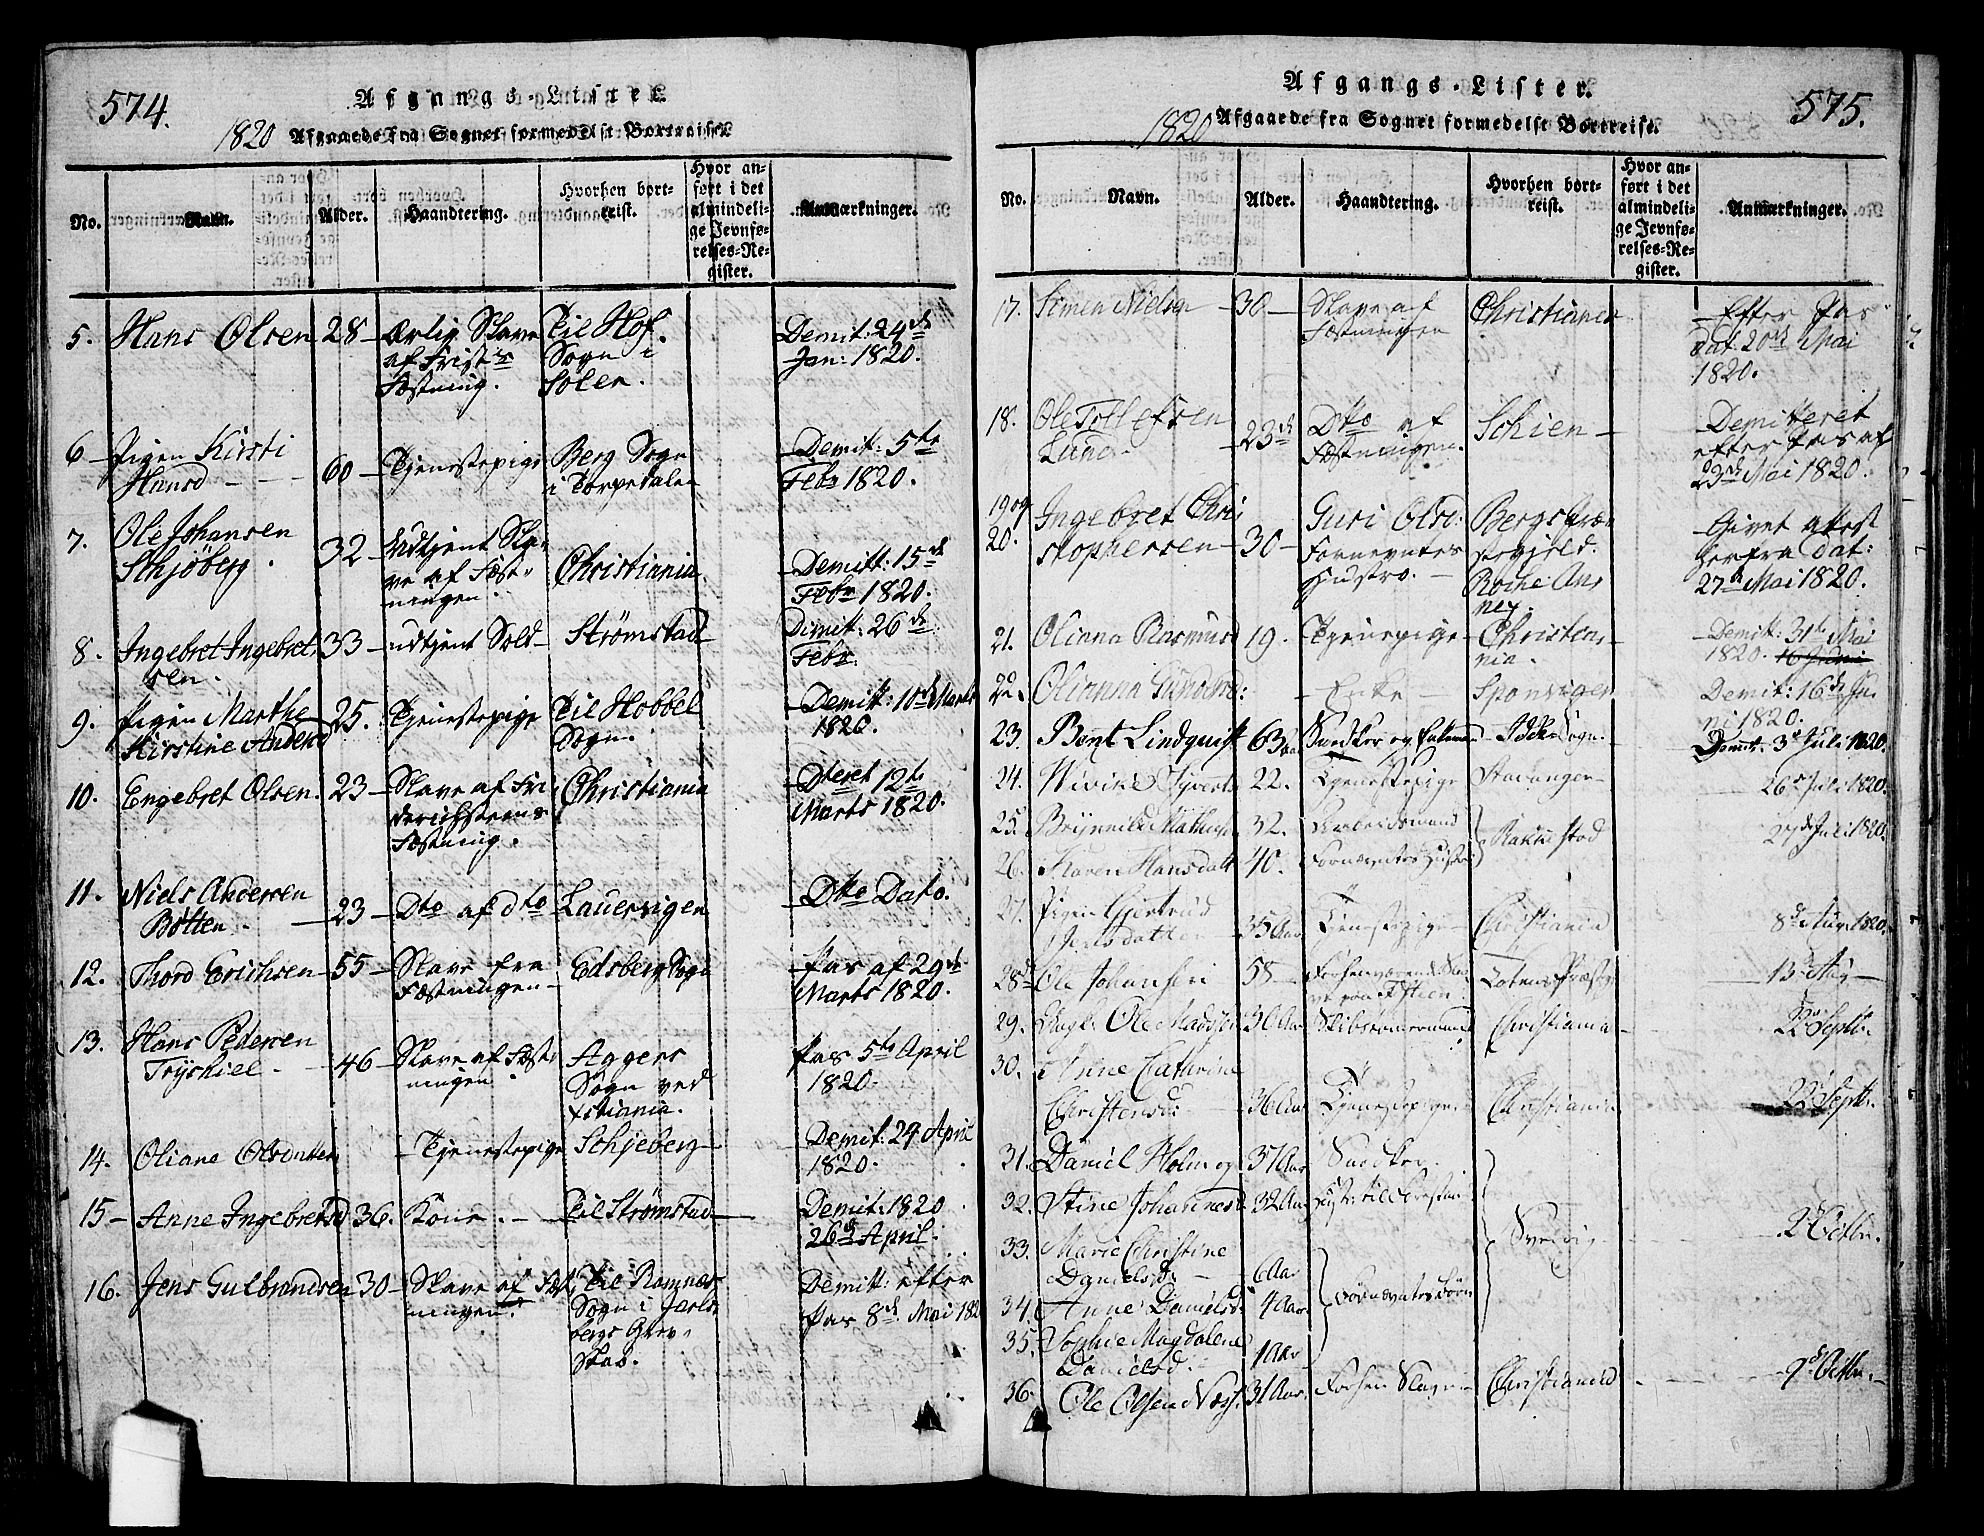 574.
Afgangs-Lister.
1820 Afgaaede fra Sognet formedelst Bortreise.
No. Navn. Alder. Haandtering. Hvorhen bortreist. Hvor anført i det almindelige Jevnførelses-Register. Anmærkninger.
5. Hans Olsen 28 - Ærlig Slave Til Hof Demit: 24de
af Frist:s Sogn i Jan: 1820.
Fæstning. Soløer.
6 - Pigen Kirsti
60 - Tjenestepige Berg Sogn Demit: 5te
i Torpedalen Febr 1820.
7. Ole Johansen
Schjöberg. 32 - Udtjent Slave af Fæstningen. Christiania. Demitt: 15de
Febr 1820.
8. Ingebret Ingebretsen. 33 - udtjent Sold- Strømstad Dimitt: 26de
Febr.
9. Pigen Marthe 25. Tjenestepige Til Hobbel Demitt: 10de Marts
Kirstine Andersd Sogn. 1820.
10. Engebret Olsen. 23 - Slave af Friderichsteens Christiania Dteret 12te
Fæstning. Marts 1820.
11. Niels Andersen
Botten. - 23 - Dto af dto Lauervigen Dto Dato.
12. Thord Erichsen - 55 - Slave fra Edsberg Sogn Pas af 29de
Fæstningen - Marts 1820.
13. Hans Pedersen
Tryskiel. - 46 - Slave af Fæstningen Aggers Pas 5te April
Sogn ved 1820.
Xstiania.
14. Oliane Olsdatter - Tjenestepige Schjeberg - Demit: 29 April
1820.
15 - Anne Ingebretsd 36. Kone. - Til Strømstad Demit: 1820
26de April.
16. Jens Gulbrandsen 30 - Slave af Fæstningen. Til Ramnæs Demitt: efter
Sogn i Jarlsbergs Grevskab. Pas 8de Mai 182
575.
Afgangs-Lister.
1820 Afgaaede fra Sognet formedelst Bortreise.
No. Navn. Alder. Haandtering. Hvorhen bortreist. Hvor anført i det almindelige Jevnførelses-Register. Anmærkninger.
17. Simen Nielsen - 30 - Slave af Christiania - Efter Pas
Fæstningen dat. 20de Mai
1820.
18. Ole Tollefsen
Lund. - 23de Dto af Schien - Demitteret
Fæstningen. efter Pas af
23de Mai 1820.
19 og Ingebret Chri Guri Olsd: Bergs Givet attest
20. stophersen - 30 - Fornevntes herfra dat:
Hustro. - 27de Mai 1820.
21. Olianna Rasmusd 19. Tjenepige - Christiania. Demitt: 31te Mai
1820. 16 Juni
22. Olianna - Enke - Sponvigen Demit: 16de Juni 1820.
23. Bent Lindquist 63 Snedker og - Idde Sogn. - Demit. 3de Juli 1820.
24. 22. Tjenestepige Stavanger - 26de Juli 1820.
25. 32. Arbeidsmand Rakkestad 27de Juli 1820.
26. Karen Hansdatt 40. Fornævntes Hustru
27. Pigen Gjertrud
35 Aar Tjenestepige Christiania 8de Aug. 1820.
28de Ole Johansen 58 - 13de Aug -
29. Ole Madsen 30 Aar Christiania - 22de Septbr.
30. Anne Cathrine
Christensd: - 36 Aar Tjenestepige. Christiania 22de Septbr.
31. Daniel Holm og 37 Aar Snedker.
32. Stine Johannesd 32 Aar
33. Marie Christine
Danielsd: - 6 Aar Svelvig - 2de Octbr.
34. Anne Danielsd 4 Aar Fornævntes Børn
35. Sophie Magdalene
Danielsd. 1 Aar
36. Ole Olsen 31 Aar. Forhen Slave - Christiania - 9de Octbr. -